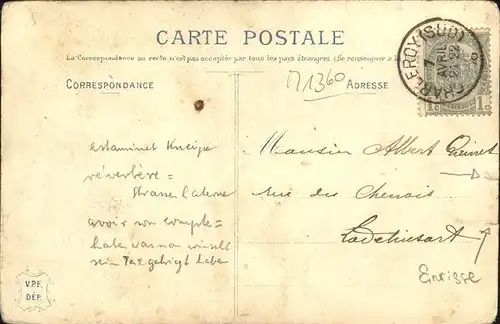 CARTE POSTALE
La Correspondance au recto n'est pas acceptée par tous les pays étrangers (Se renseigner à l
CORRESPONDANCE
ADRESSE
M1360
CHARLEROY (SUD)
7
AVRIL
22
1c 1c
estaminet Kneipe
réverbère =
Strassenlaterne
avoir son compte =
habe was man
sein Teil gekriegt haben
Monsieur Albert
rue des Chenois
Lodelinsart
V.P.F.
DÉP.